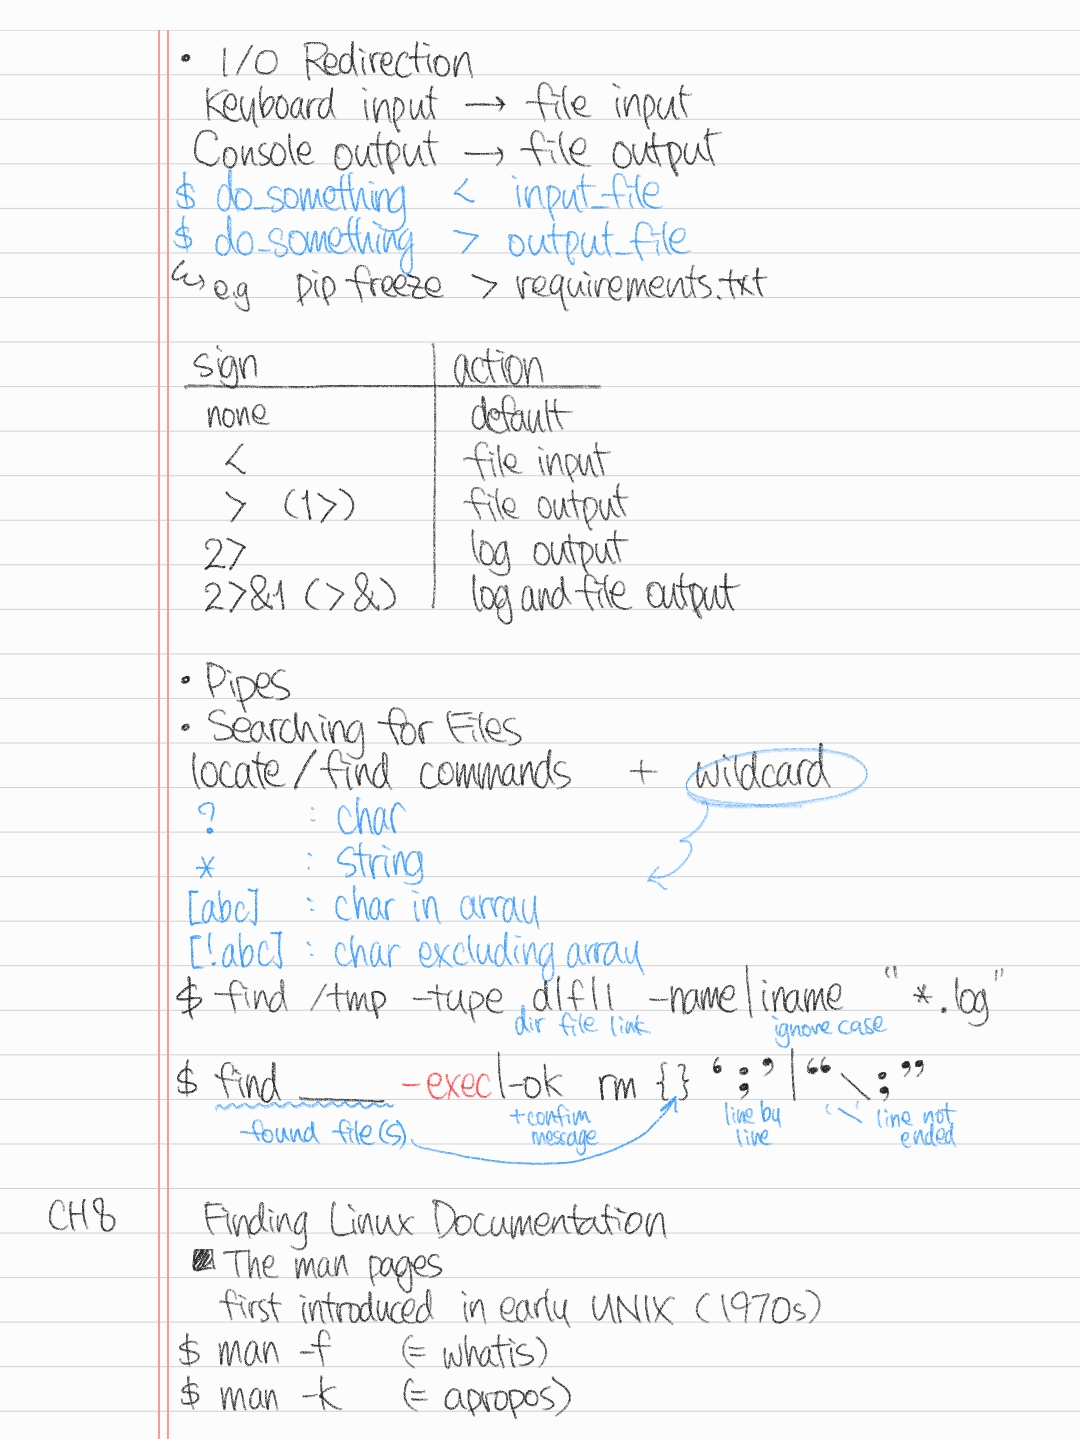 • I/O Redirection
Keyboard input → file input
Console output → file output
$ do_something < input_file
$ do_something > output_file
↪ e.g pip freeze > requirements.txt
sign | action
none | default
< | file input
> (1>) | file output
2> | log output
2>&1 (>&) | log and file output
• Pipes
• Searching for Files
locate/find commands + wildcard
? : char
* : string
[abc] : char in array
[!abc] : char excluding array
$ find /tmp -tupe d|f|l -name|iname "*.log"
dir file link ignore case
$ find ____ -exec|-ok rm {} ‘;’|“\;”
found file(s) +confim message line by line ‘\’ line not ended
CH8 Finding Linux Documentation
■ The man pages
first introduced in early UNIX (1970s)
$ man -f (= whatis)
$ man -k (= apropos)